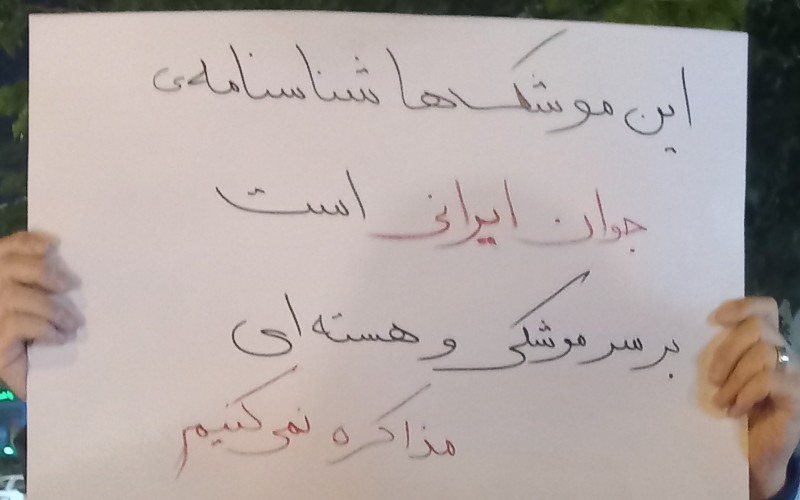 این موشک‌ها شناسنامه‌ی
جوان ایرانی است
بر سر موشکی و هسته‌ای
مذاکره نمی‌کنیم